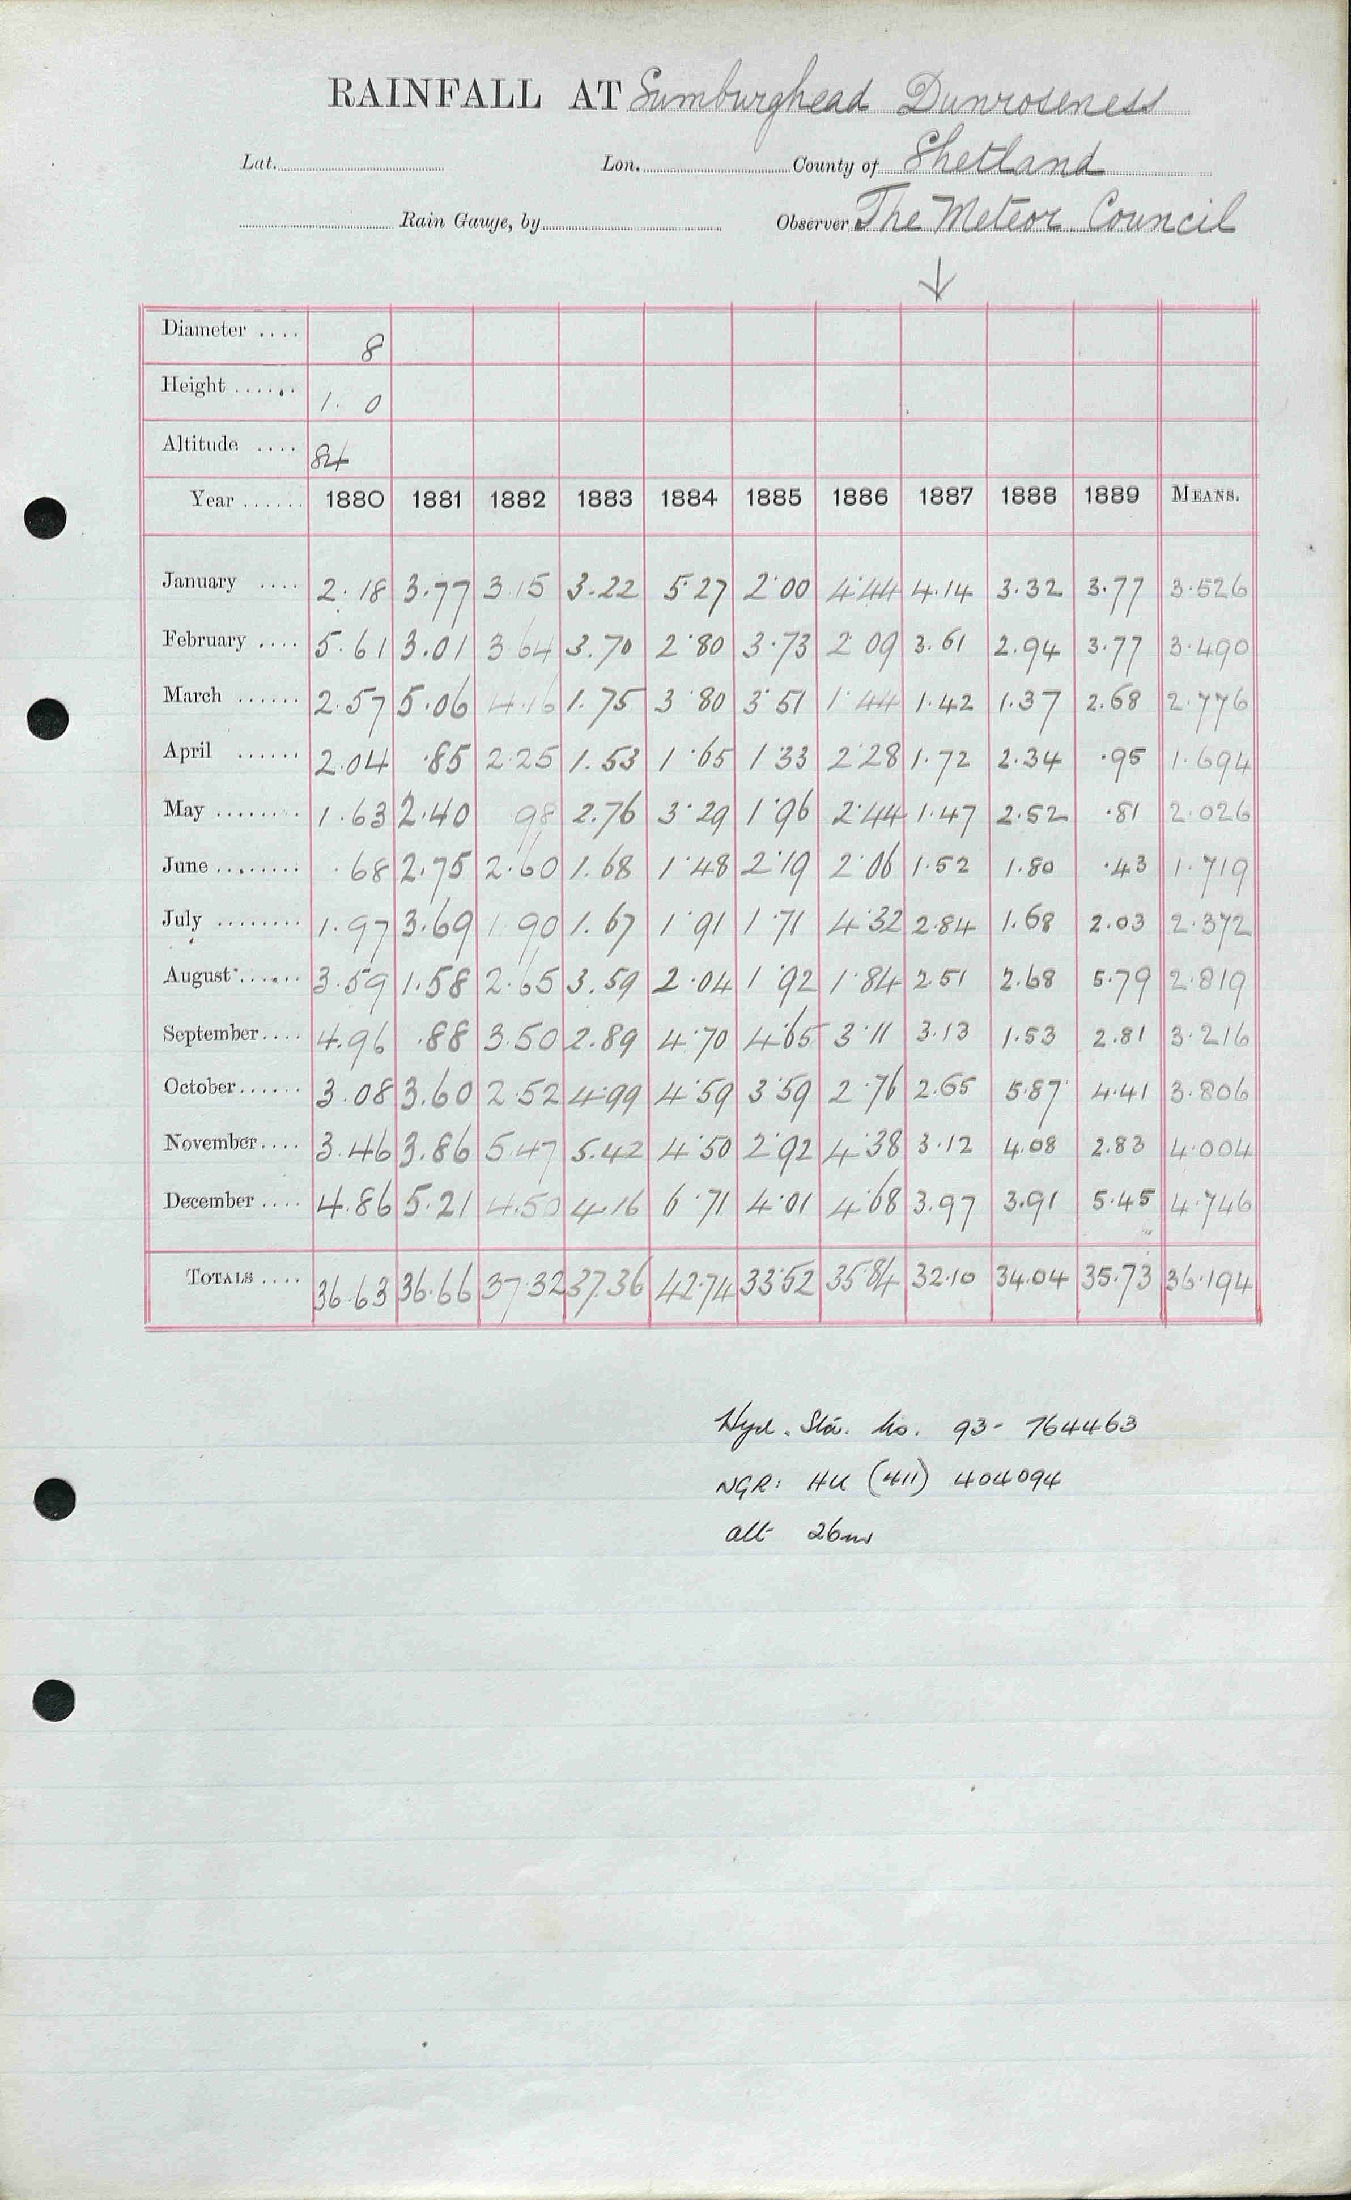 RAINFALL AT Sumburghead Dunroseness
Lat. Lon. County of Shetland
Rain Gauge, by Observer The Meteor. Council
↓
Diameter .... 8
Height ...... 1. 0
Altitude .... 84
Year ...... 1880 1881 1882 1883 1884 1885 1886 1887 1888 1889 MEANS.
January .... 2.18 3.77 3.15 3.22 5.27 2.00 4.44 4.14 3.32 3.77 3.526
February .... 5.61 3.01 3.64 3.70 2.80 3.73 2.09 3.61 2.94 3.77 3.490
March ...... 2.57 5.06 4.16 1.75 3.80 3.51 1.44 1.42 1.37 2.68 2.776
April ...... 2.04 .85 2.25 1.53 1.65 1.33 2.28 1.72 2.34 .95 1.694
May ........ 1.63 2.40 .98 2.76 3.29 1.96 2.44 1.47 2.52 .81 2.026
June ........ .68 2.75 2.60 1.68 1.48 2.19 2.06 1.52 1.80 .43 1.719
July ........ 1.97 3.69 1.90 1.67 1.91 1.71 4.32 2.84 1.68 2.03 2.372
August ...... 3.59 1.58 2.65 3.59 2.04 1.92 1.84 2.51 2.68 5.79 2.819
September .... 4.96 .88 3.50 2.89 4.70 4.65 3.11 3.13 1.53 2.81 3.216
October ...... 3.08 3.60 2.52 4.99 4.59 3.59 2.76 2.65 5.87 4.41 3.806
November .... 3.46 3.86 5.47 5.42 4.50 2.92 4.38 3.12 4.08 2.83 4.004
December .... 4.86 5.21 4.50 4.16 6.71 4.01 4.68 3.97 3.91 5.45 4.746
TOTALS .... 36.63 36.66 37.32 37.36 42.74 33.52 35.84 32.10 34.04 35.73 36.194
Hyd. Sta. No. 93- 764463
NGR: HU (411) 404094
alt 26m